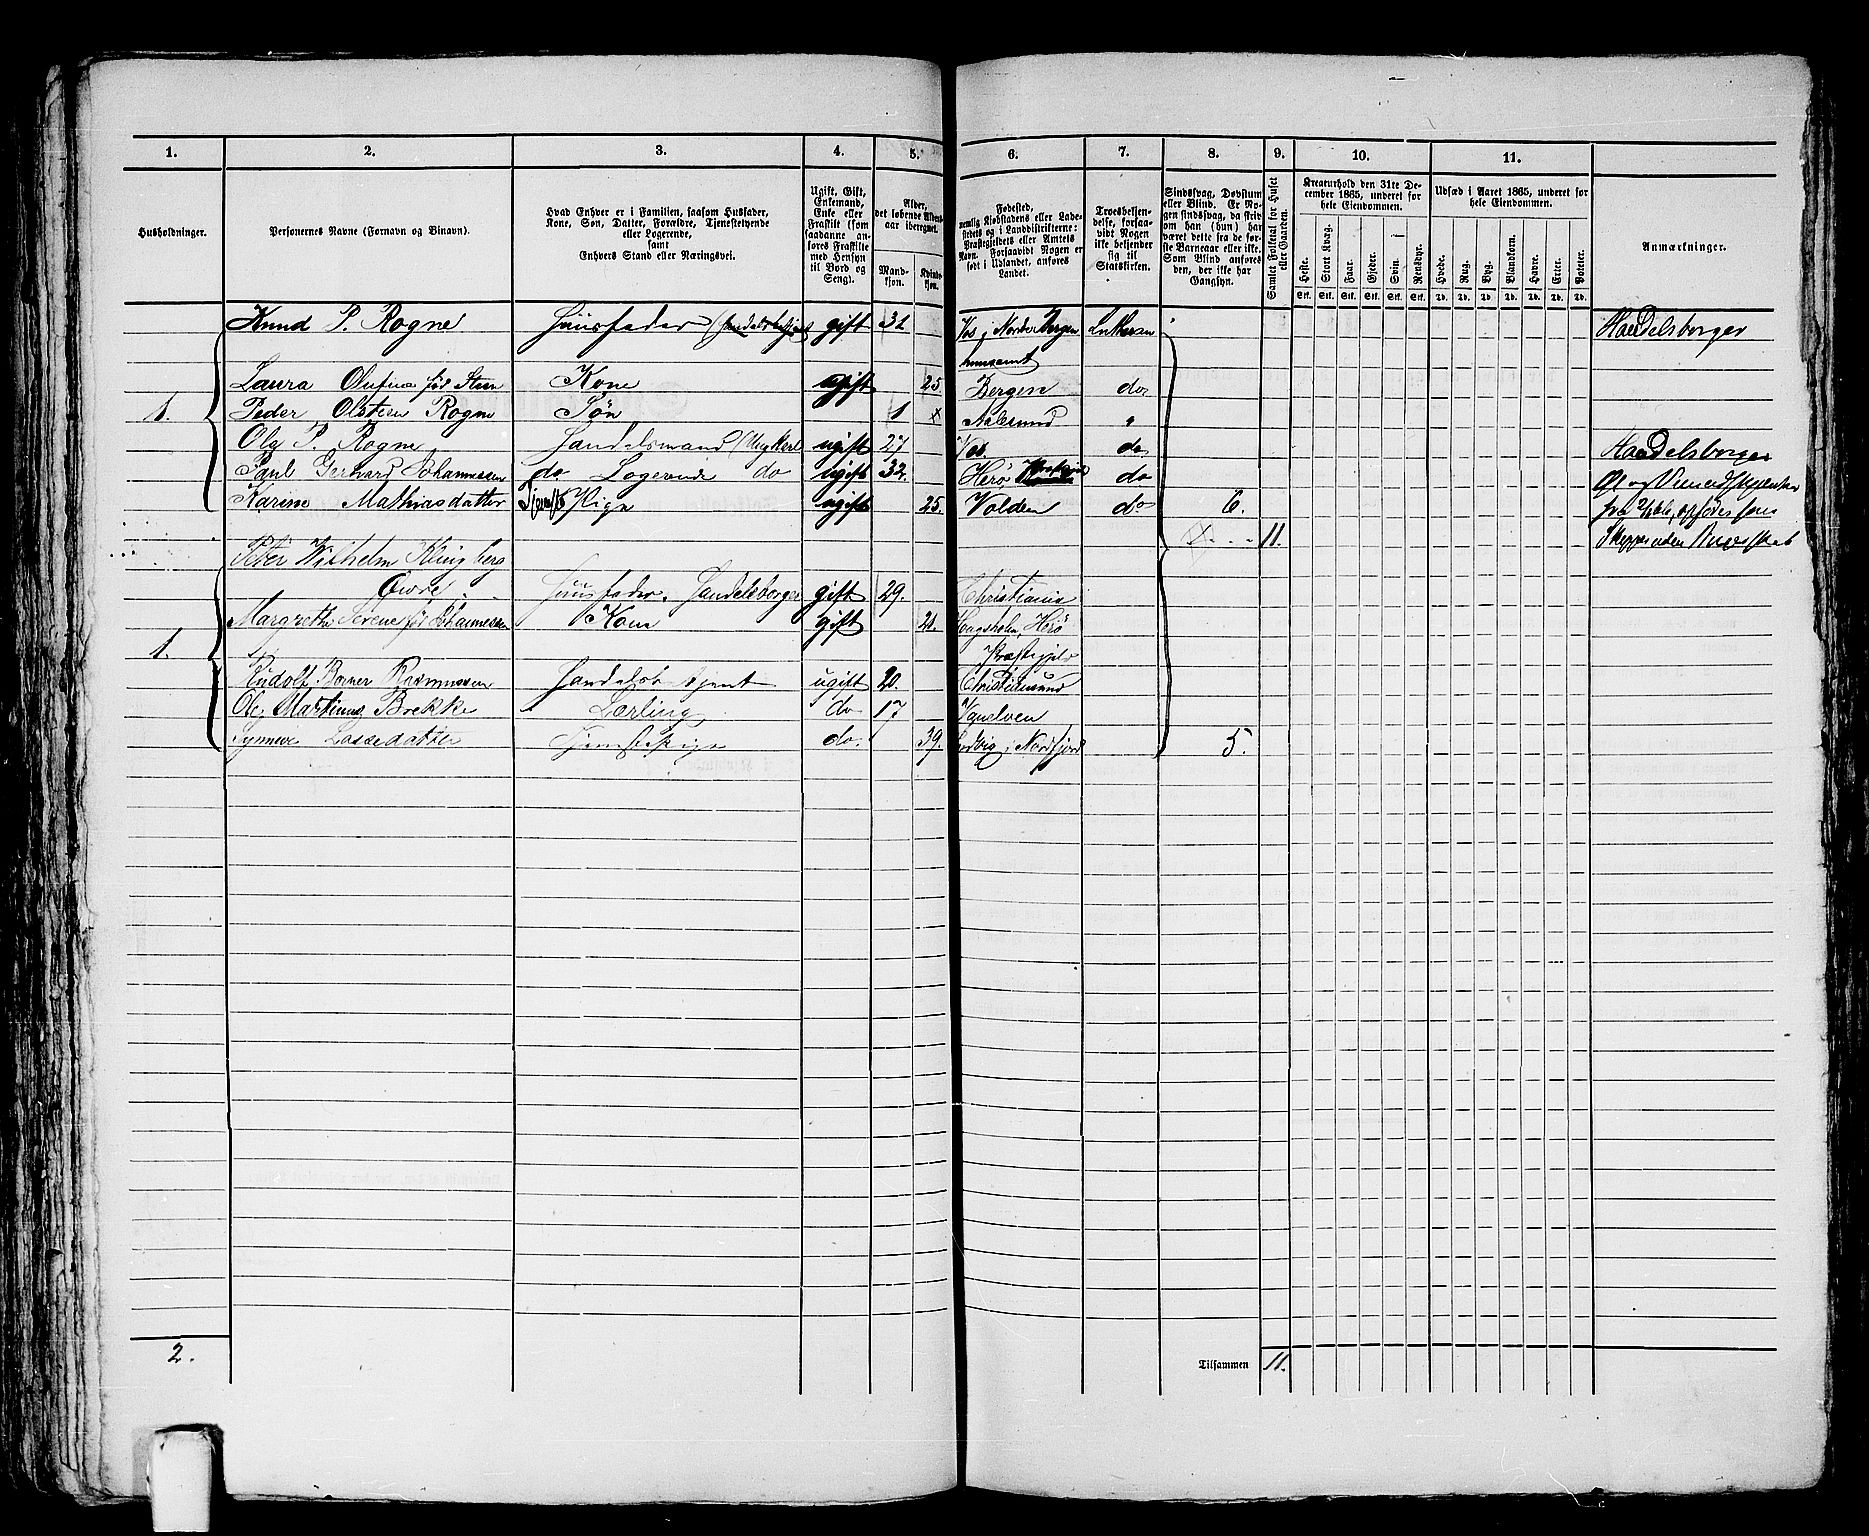 1. 2. 3. 4. 5. 6. 7. 8. 9. 10. 11.
Husholdninger.
Personernes Navne (Fornavn og Binavn).
Hvad Enhver er i Familien, saasom Husfader,
Kone, Søn, Datter, Forældre, Tjenestetyende
eller Logerende,
samt
Enhvers Stand eller Næringsvei.
Ugift, Gift,
Enkemand,
Enke eller
Fraskilt (som
saadanne anføres
Fraskilte
med Hensyn
til Bord og
Seng).
Alder,
det løbende Alders-
aar iberegnet.
Mand-
kjøn.
Kvinde-
kjøn.
Fødested,
nemlig Kjøbstadens eller Lade-
stedets og i Landdistrikterne:
Præstegjeldets eller Amtets
Navn. Forsaavidt Nogen er
født i Udlandet, anføres
Landet.
Troesbekjen-
delse, forsaa-
vidt Nogen
ikke bekjender
sig til
Statskirken.
Sindssvag, Døvstum
eller Blind. Er No-
gen sindssvag, da skriv
om han (hun) har
været dette fra de før-
ste Barneaar eller ikke.
Som Blind anføres
den, der ikke har
Gangsyn.
Samlet Folketal for Huset
eller Gaarden.
Kreaturhold den 31te De-
cember 1865, underet for
hele Eiendommen.
Heste. Stort Kvæg. Faar. Gjeder. Svin. Rensdyr.
Stk. Stk. Stk. Stk. Stk. Stk.
Udsæd i Aaret 1865, underet for
hele Eiendommen.
Hvede. Rug. Byg. Blandkorn. Havre. Erter. Poteter.
Td. Td. Td. Td. Td. Td. Td.
Anmærkninger.
Knud P. Rogne Huusfader gift 31 Vos i Nordre Bergen Luthersk Handelsborger
huusamt
Laura Olufine født Steen Kone gift 25. Bergen do
1. Peder Olsteen Rogne Søn 1 Aalesund "
Ole P. Rogne Handelsmand (Ungkarl ugift 27 Vos do Handelsborger
Paul Gerhard Johannessen do Logerende do ugift 32. Herø do
Karine Mathiasdatter Tjeneste Pige ugift 25. Volden do 6.
11.
Peter Wilhelm Klingberg
Huusfader. Handelsborger gift 29. Christiania
Margrethe Serene før Johannessen Kone gift 21. Herø
1. Præstegjeld
Rudolf Berner Rasmussen Handelsbetjent ugift 20. Christiansund
Ole Martinus Brekke Lærling do 17
Synneve Lassedatter Tjenestepige do. 39. i Nordfjord 5.
2. Tilsammen 11.